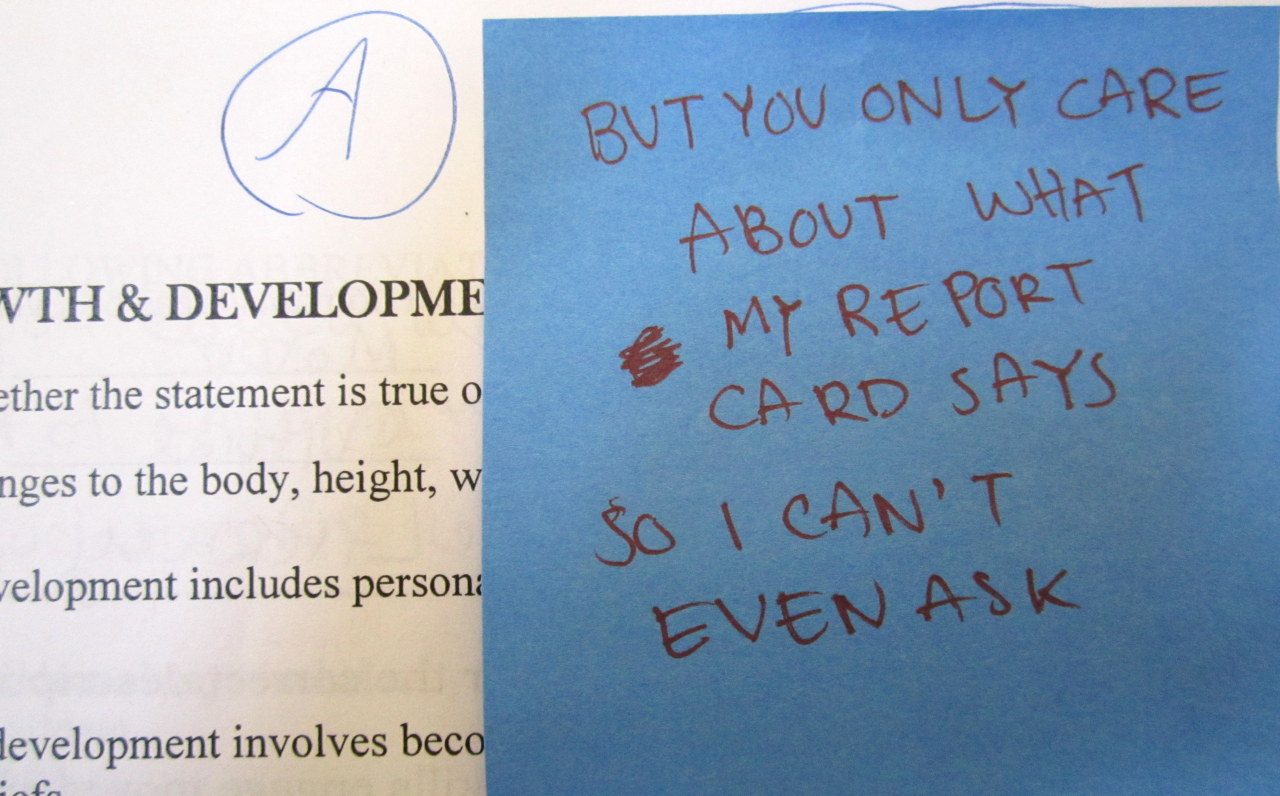 A
WTH & DEVELOPME
ether the statement is true o
nges to the body, height, w
velopment includes persona
development involves beco
iefs
BUT YOU ONLY CARE
ABOUT WHAT
MY REPORT
CARD SAYS
SO I CAN'T
EVEN ASK